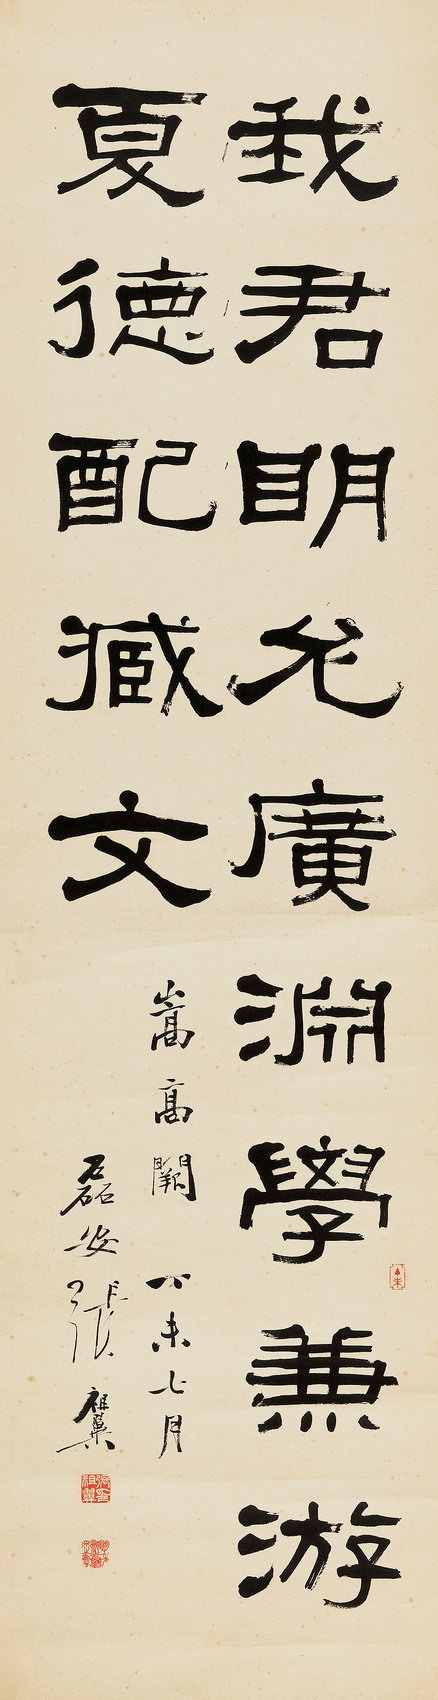 我君明允廣淵學兼游
夏德配臧文
嵩高闕 丁未七月
磊安張祖翼